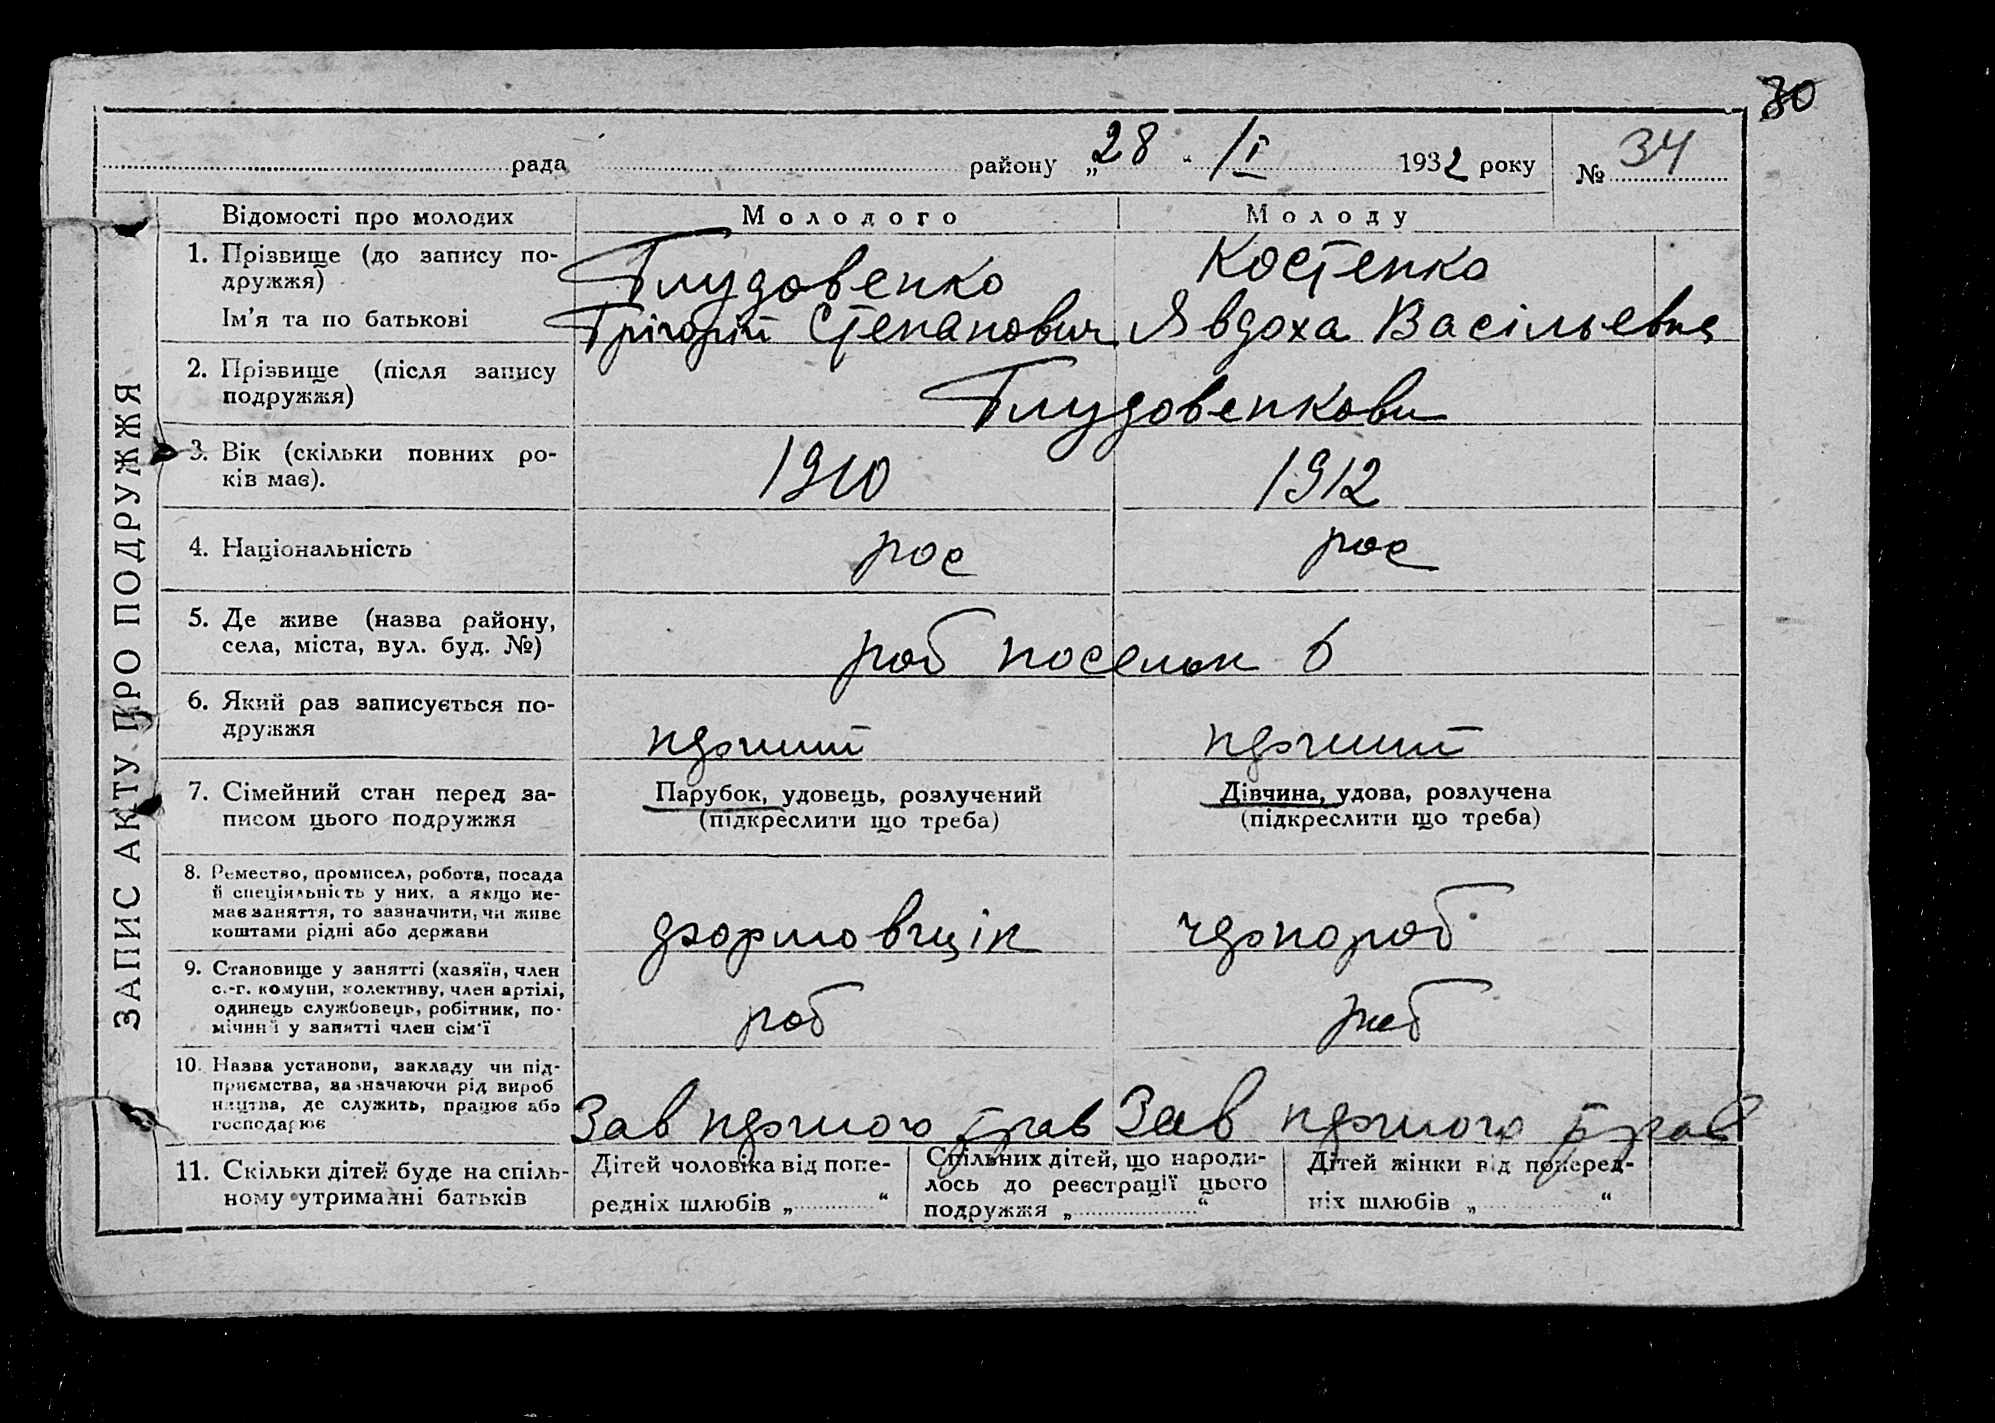 30
рада району „28“ /I 1932 року № 34
ЗАПИС АКТУ ПРО ПОДРУЖЖЯ
Відомості про молодих Молодого Молоду
1. Прізвище (до запису по-
дружжя)
Глудовенко Костенко
Ім'я та по батькові Грігорій Степанович Явдоха Васільевна
2. Прізвище (після запису
подружжя)
Глудовенкови
3. Вік (скільки повних ро-
ків має).
1910 1912
4. Національність рос рос
5. Де живе (назва району,
села, міста, вул. буд. №)
роб поселок 6
6. Який раз записується по-
дружжя
перший перший
7. Сімейний стан перед за-
писом цього подружжя
Парубок, удовець, розлучений
(підкреслити що треба)
Дівчина, удова, розлучена
(підкреслити що треба)
8. Ремество, промисел, робота, посада
й спеціяльність у них, а якщо не-
має заняття, то зазначити, чи живе
коштами рідні або держави
формовщік чернороб
9. Становище у занятті (хазяїн, член
с.-г. комуни, колективу, член артілі,
одинець службовець, робітник, по-
мічний у занятті член сім'ї
роб роб
10. Назва установи, закладу чи під-
приємства, зазначаючи рід вироб
ництва, де служить, працює або
господарює
Зав першого трав Зав першого трав
11. Скільки дітей буде на спіль-
ному утриманні батьків
Дітей чоловіка від попе-
редніх шлюбів „ “
Спільних дітей, що народи-
лось до реєстрації цього
подружжя „ “
Дітей жінки від поперед-
ніх шлюбів „ “